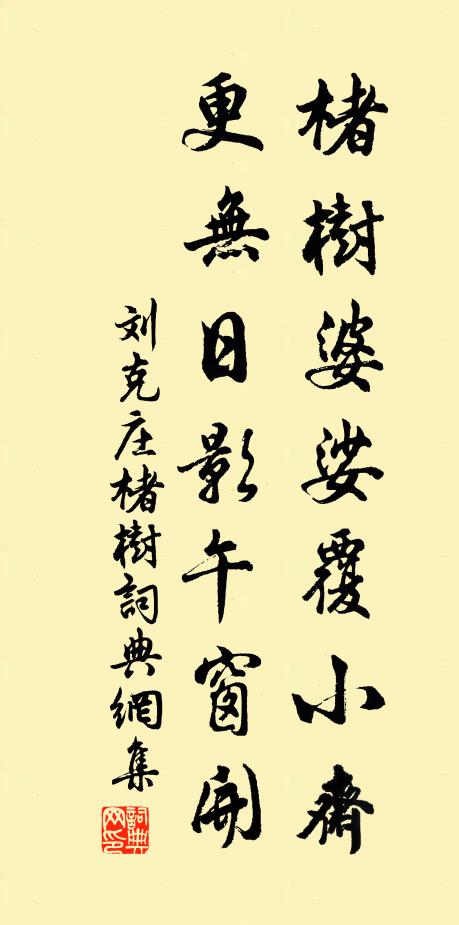 楮樹婆娑覆小齋
更無日影午窗開
刘克庄楮樹詞典網集
詞典網印